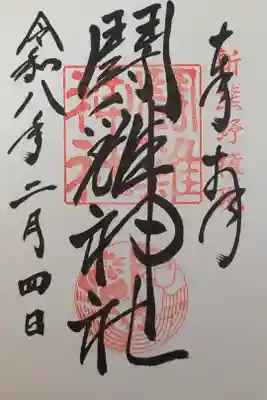 新熊野
奉拝
闘雞神社
闘雞
神社
令和八年二月四日